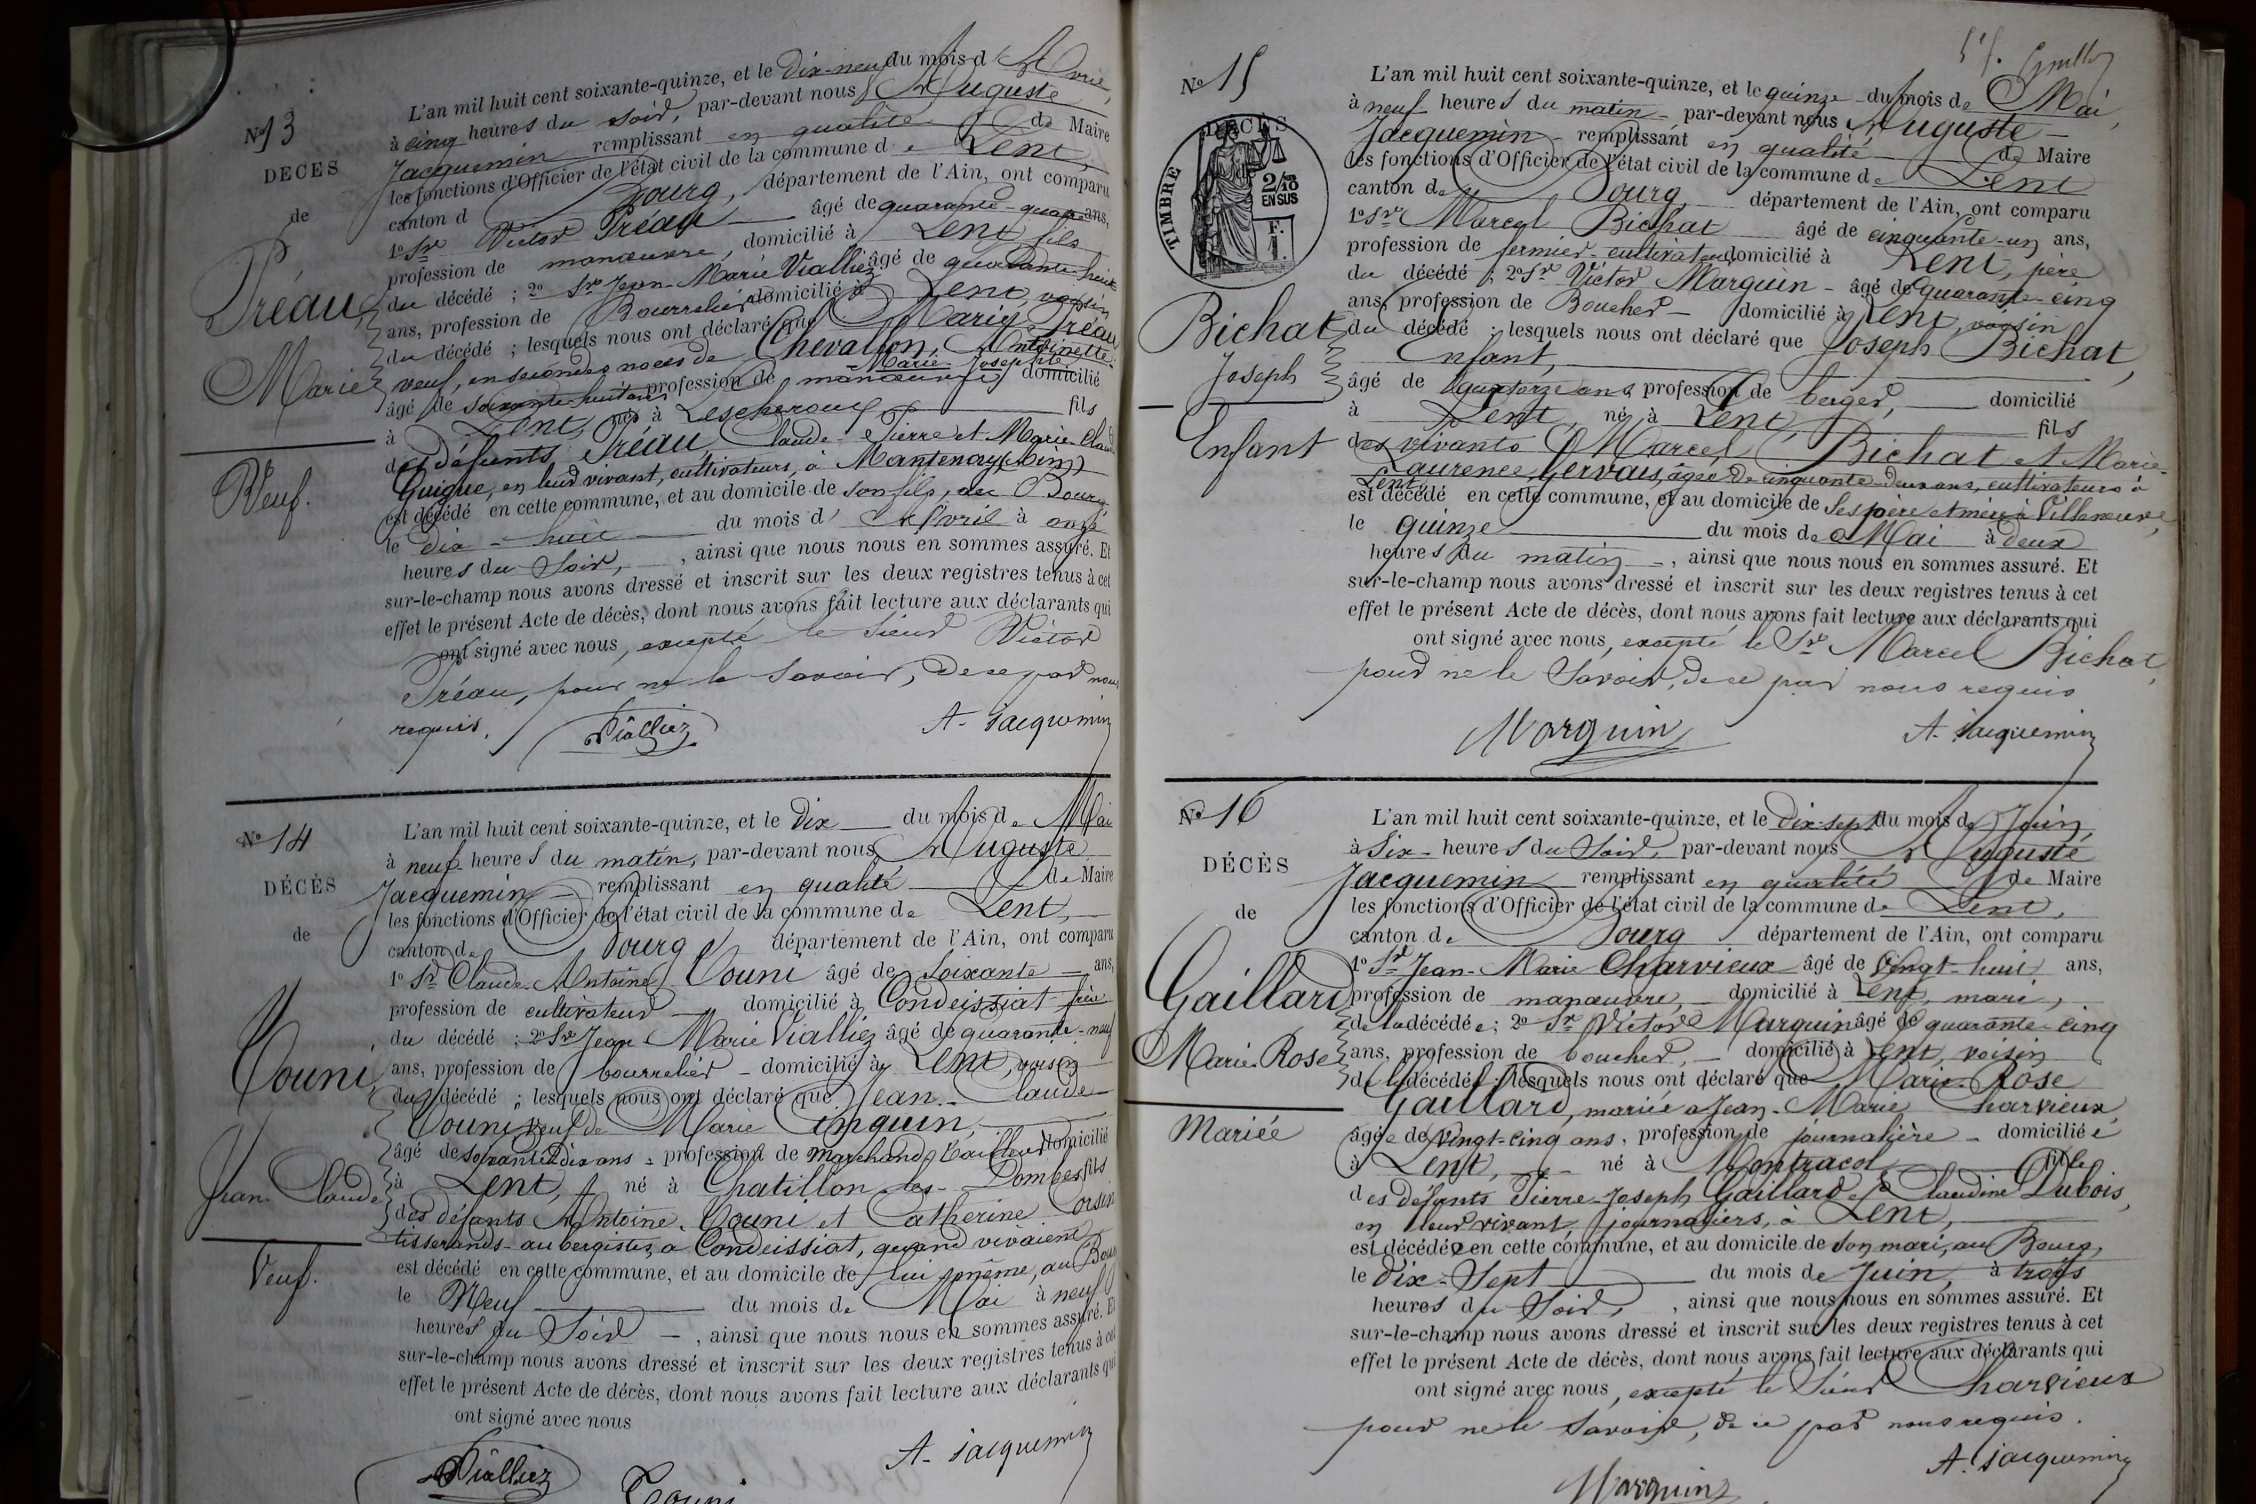 N° 13
DÉCÈS
de
Préau
Marie
Veuf.
L'an mil huit cent soixante-quinze, et le dix-neuf du mois d'Avril,
à cinq heures du soir, par-devant nous Auguste
Jacquemin remplissant en qualité de Maire
les fonctions d'Officier de l'état civil de la commune de Lent,
canton d Bourg, département de l'Ain, ont comparu
1° Sr Victor Préau âgé de quarante-quatre ans,
profession de manœuvre, domicilié à Lent fils
du décédé ; 2° Sr Jean-Marie Vialliez âgé de quarante-huit
ans, profession de Bourrelier domicilié à Lent, voisin
du décédé ; lesquels nous ont déclaré que Marie Préau
veuf, en secondes noces de Chevallon, Antoinette
Marie-Josephte
âgé de soixante-huit ans profession de manœuvre domicilié
à Lent, né à Lescheroux fils
des défunts Préau Claude-Pierre et Marie-Claudi
Guigue, en leur vivant, cultivateurs, à Mantenay (Ain)
est décédé en cette commune, et au domicile de son fils, au Bourg,
le dix-huit du mois d'Avril à onze
heures du Soir, , ainsi que nous nous en sommes assuré. Et
sur-le-champ nous avons dressé et inscrit sur les deux registres tenus à cet
effet le présent Acte de décès, dont nous avons fait lecture aux déclarants qui
ont signé avec nous, excepté le sieur Victor
Préau, pour ne le savoir, de ce par nous
requis.
Vialliez A. Jacquemin
N° 14
DÉCÈS
de
Couni
Jean-Claude
Veuf.
L'an mil huit cent soixante-quinze, et le Dix du mois de Mai
à neuf heures du matin, par-devant nous Auguste
Jacquemin remplissant en qualité de Maire
les fonctions d'Officier de l'état civil de la commune de Lent,
canton de Bourg département de l'Ain, ont comparu
1° Sr Claude-Antoine Couni âgé de soixante ans,
profession de cultivateur domicilié à Condeissiat frère
du décédé ; 2° Sr Jean Marie Vialliez âgé de quarante-neuf
ans, profession de bourrelier domicilié à Lent, voisin
du décédé ; lesquels nous ont déclaré que Jean-Claude
Couni veuf de Marie
âgé de soixante dix ans profession de marchand tailleur domicilié
à Lent, né à Chatillon-les-Dombes fils
des défunts Antoine Couni et Catherine
tisserands-aubergistes à Condeissiat, quand vivaient
est décédé en cette commune, et au domicile de lui même, au Bourg
le Neuf du mois de Mai à neuf
heures du Soir , ainsi que nous nous en sommes assuré. Et
sur-le-champ nous avons dressé et inscrit sur les deux registres tenus à cet
effet le présent Acte de décès, dont nous avons fait lecture aux déclarants qui
ont signé avec nous
A. Jacquemin
Vialliez Couni
N° 15
DÉCÈS
TIMBRE
2/10
EN SUS
F.
1.
Bichat
Joseph
Enfant
L'an mil huit cent soixante-quinze, et le quinze du mois de Mai,
à neuf heures du matin par-devant nous Auguste
Jacquemin remplissant en qualité de Maire
les fonctions d'Officier de l'état civil de la commune de Lent
canton de Bourg département de l'Ain, ont comparu
1° Sr Marcel Bichat âgé de cinquante-un ans,
profession de fermier-cultivateur domicilié à Lent, père
du décédé ; 2° Sr Victor Marguin âgé de quarante-cinq
ans, profession de Boucher domicilié à Lent, voisin
du décédé ; lesquels nous ont déclaré que Joseph Bichat,
Enfant,
âgé de quatorze ans, profession de berger, domicilié
à Lent, né à Lent, fils
des vivants Marcel Bichat et Marie-
Laurence Gervais, âgée de cinquante-deux ans, cultivateurs à
Lent,
est décédé en cette commune, et au domicile de ses père et mère à Villeneuve,
le quinze du mois de Mai à deux
heures du matin , ainsi que nous nous en sommes assuré. Et
sur-le-champ nous avons dressé et inscrit sur les deux registres tenus à cet
effet le présent Acte de décès, dont nous avons fait lecture aux déclarants qui
ont signé avec nous, excepté le Sr Marcel Bichat,
pour ne le Savoir, de ce par nous requis
Marguin A. Jacquemin
N° 16
DÉCÈS
de
Gaillard
Marie-Rose
Mariée
L'an mil huit cent soixante-quinze, et le dix-sept du mois de Juin,
à Six heures du Soir, par-devant nous Auguste
Jacquemin remplissant en qualité de Maire
les fonctions d'Officier de l'état civil de la commune de Lent,
canton de Bourg département de l'Ain, ont comparu
1° Sr Jean-Marie Charvieux âgé de vingt-huit ans,
profession de manœuvre, domicilié à Lent, mari,
de la décédée ; 2° Sr Victor Marguin âgé de quarante-cinq
ans, profession de boucher, domicilié à Lent, voisin
de la décédée ; lesquels nous ont déclaré que Marie-Rose
Gaillard, mariée à Jean-Marie Charvieux,
âgée de vingt-cinq ans, profession de journalière domiciliée
à Lent, née à Montracol, fille
des défunts Pierre-Joseph Gaillard et Claudine Dubois,
en leur vivant, journaliers, à Lent,
est décédée en cette commune, et au domicile de son mari, au Bourg,
le Dix-Sept du mois de Juin, à trois
heures du Soir, , ainsi que nous nous en sommes assuré. Et
sur-le-champ nous avons dressé et inscrit sur les deux registres tenus à cet
effet le présent Acte de décès, dont nous avons fait lecture aux déclarants qui
ont signé avec nous, excepté le Sieur Charvieux
pour ne le Savoir, de ce par nous requis.
A. Jacquemin
Marguin